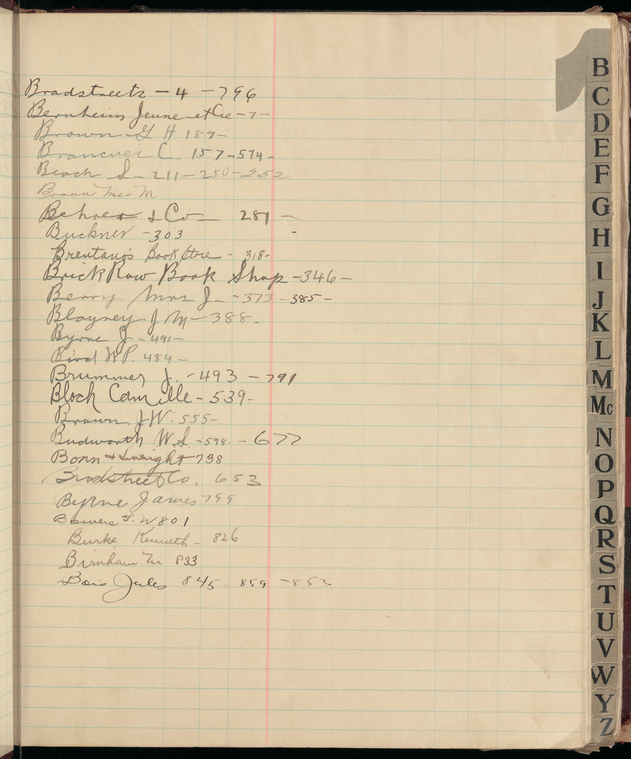 Bradstreets - 4 - 796
Bernheim Jeune et Cie - 7 -
Brown G H 189 -
Brancusi C 157 - 574 -
Beach S - 211 - 250 - 252
Braun Mrs M
Behrer & Co - 281 -
Buckner - 303 -
Brentano's Book Store - 318 -
Brick Row Book Shop - 346 -
Berry Mrs J - 373 - 385 -
Blayney J M - 388 -
Byrne J - 491 -
Bird W P. 484 -
Brummer J. - 493 - 791
Bloch Camille - 539 -
Brown J W. 555 -
Budworth W. S - 598 - 677
Bonn 738
Bradstreet Co. 653
Byrne James 799
Bowers W 801
Burke Kenneth - 826
Birnham 833
Bois Jules 845 859 - 853
B
C
D
E
F
G
H
I
J
K
L
M
Mc
N
O
P
Q
R
S
T
U
V
W
Y
Z